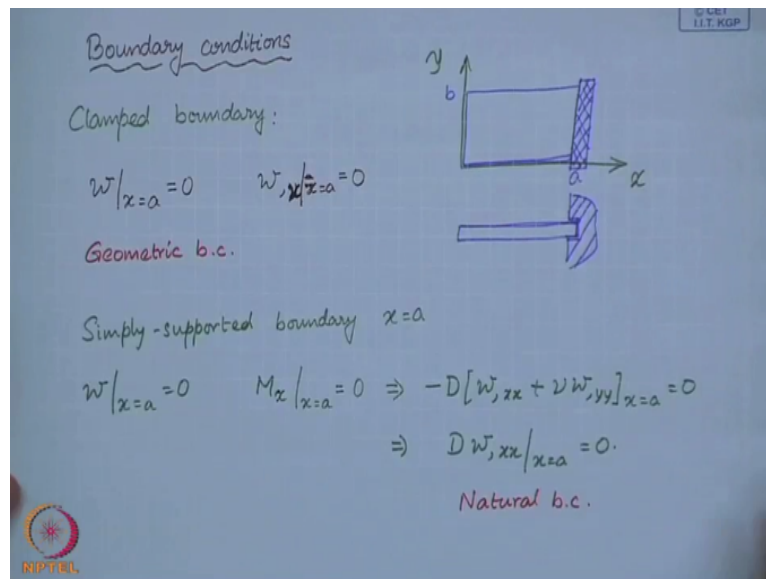 © CET
I.I.T. KGP
Boundary conditions
y
b
a
x
Clamped boundary:
w|x=a = 0    w,x|x=a = 0
Geometric b.c.
Simply-supported boundary x=a
w|x=a = 0    Mx|x=a = 0 ⇒ -D[w,xx + νw,yy]x=a = 0
⇒ D w,xx|x=a = 0.
Natural b.c.
NPTEL